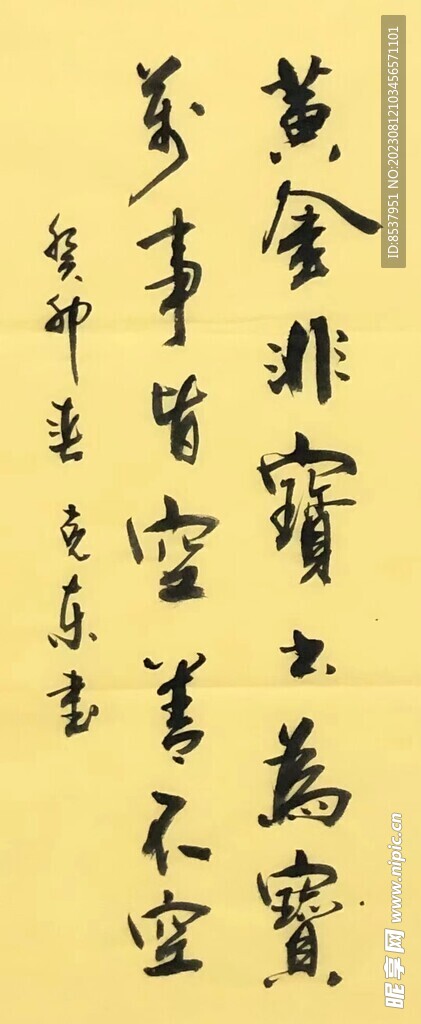 黄金非寳書為寳
萬事皆空善不空
癸卯春 克东書
ID:8537951 NO:20230812103456571101
昵享网 www.nipic.cn